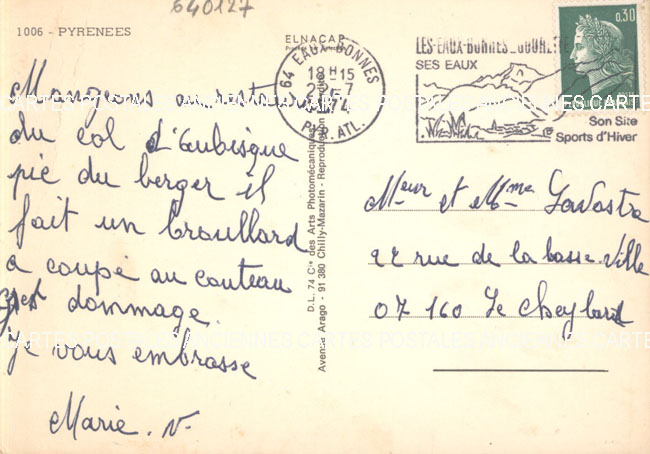 640127
1006 - PYRENEES
ELNACAP
64 EAUX-BONNES
18H15
2-7
1974
PYR. ATL.
LES-EAUX-BONNES_GOURETTE
SES EAUX
Son Site
Sports d'Hiver
0,30
Mangeons au rest
du col d'Aubisque
pic du berger il
fait un brouillard
a coupé au couteau
c'est dommage
je vous embrasse
Marie. N.
D.L. 74 Cie des Arts Photomécaniques
Avenue Arago - 91380 Chilly-Mazarin - Reproduction interdite
Meur et Mme
22 rue de la basse Ville
07160 Le Cheylard
CARTES POSTALES ANCIENNES CARTES POSTALES ANCIENNES CARTES